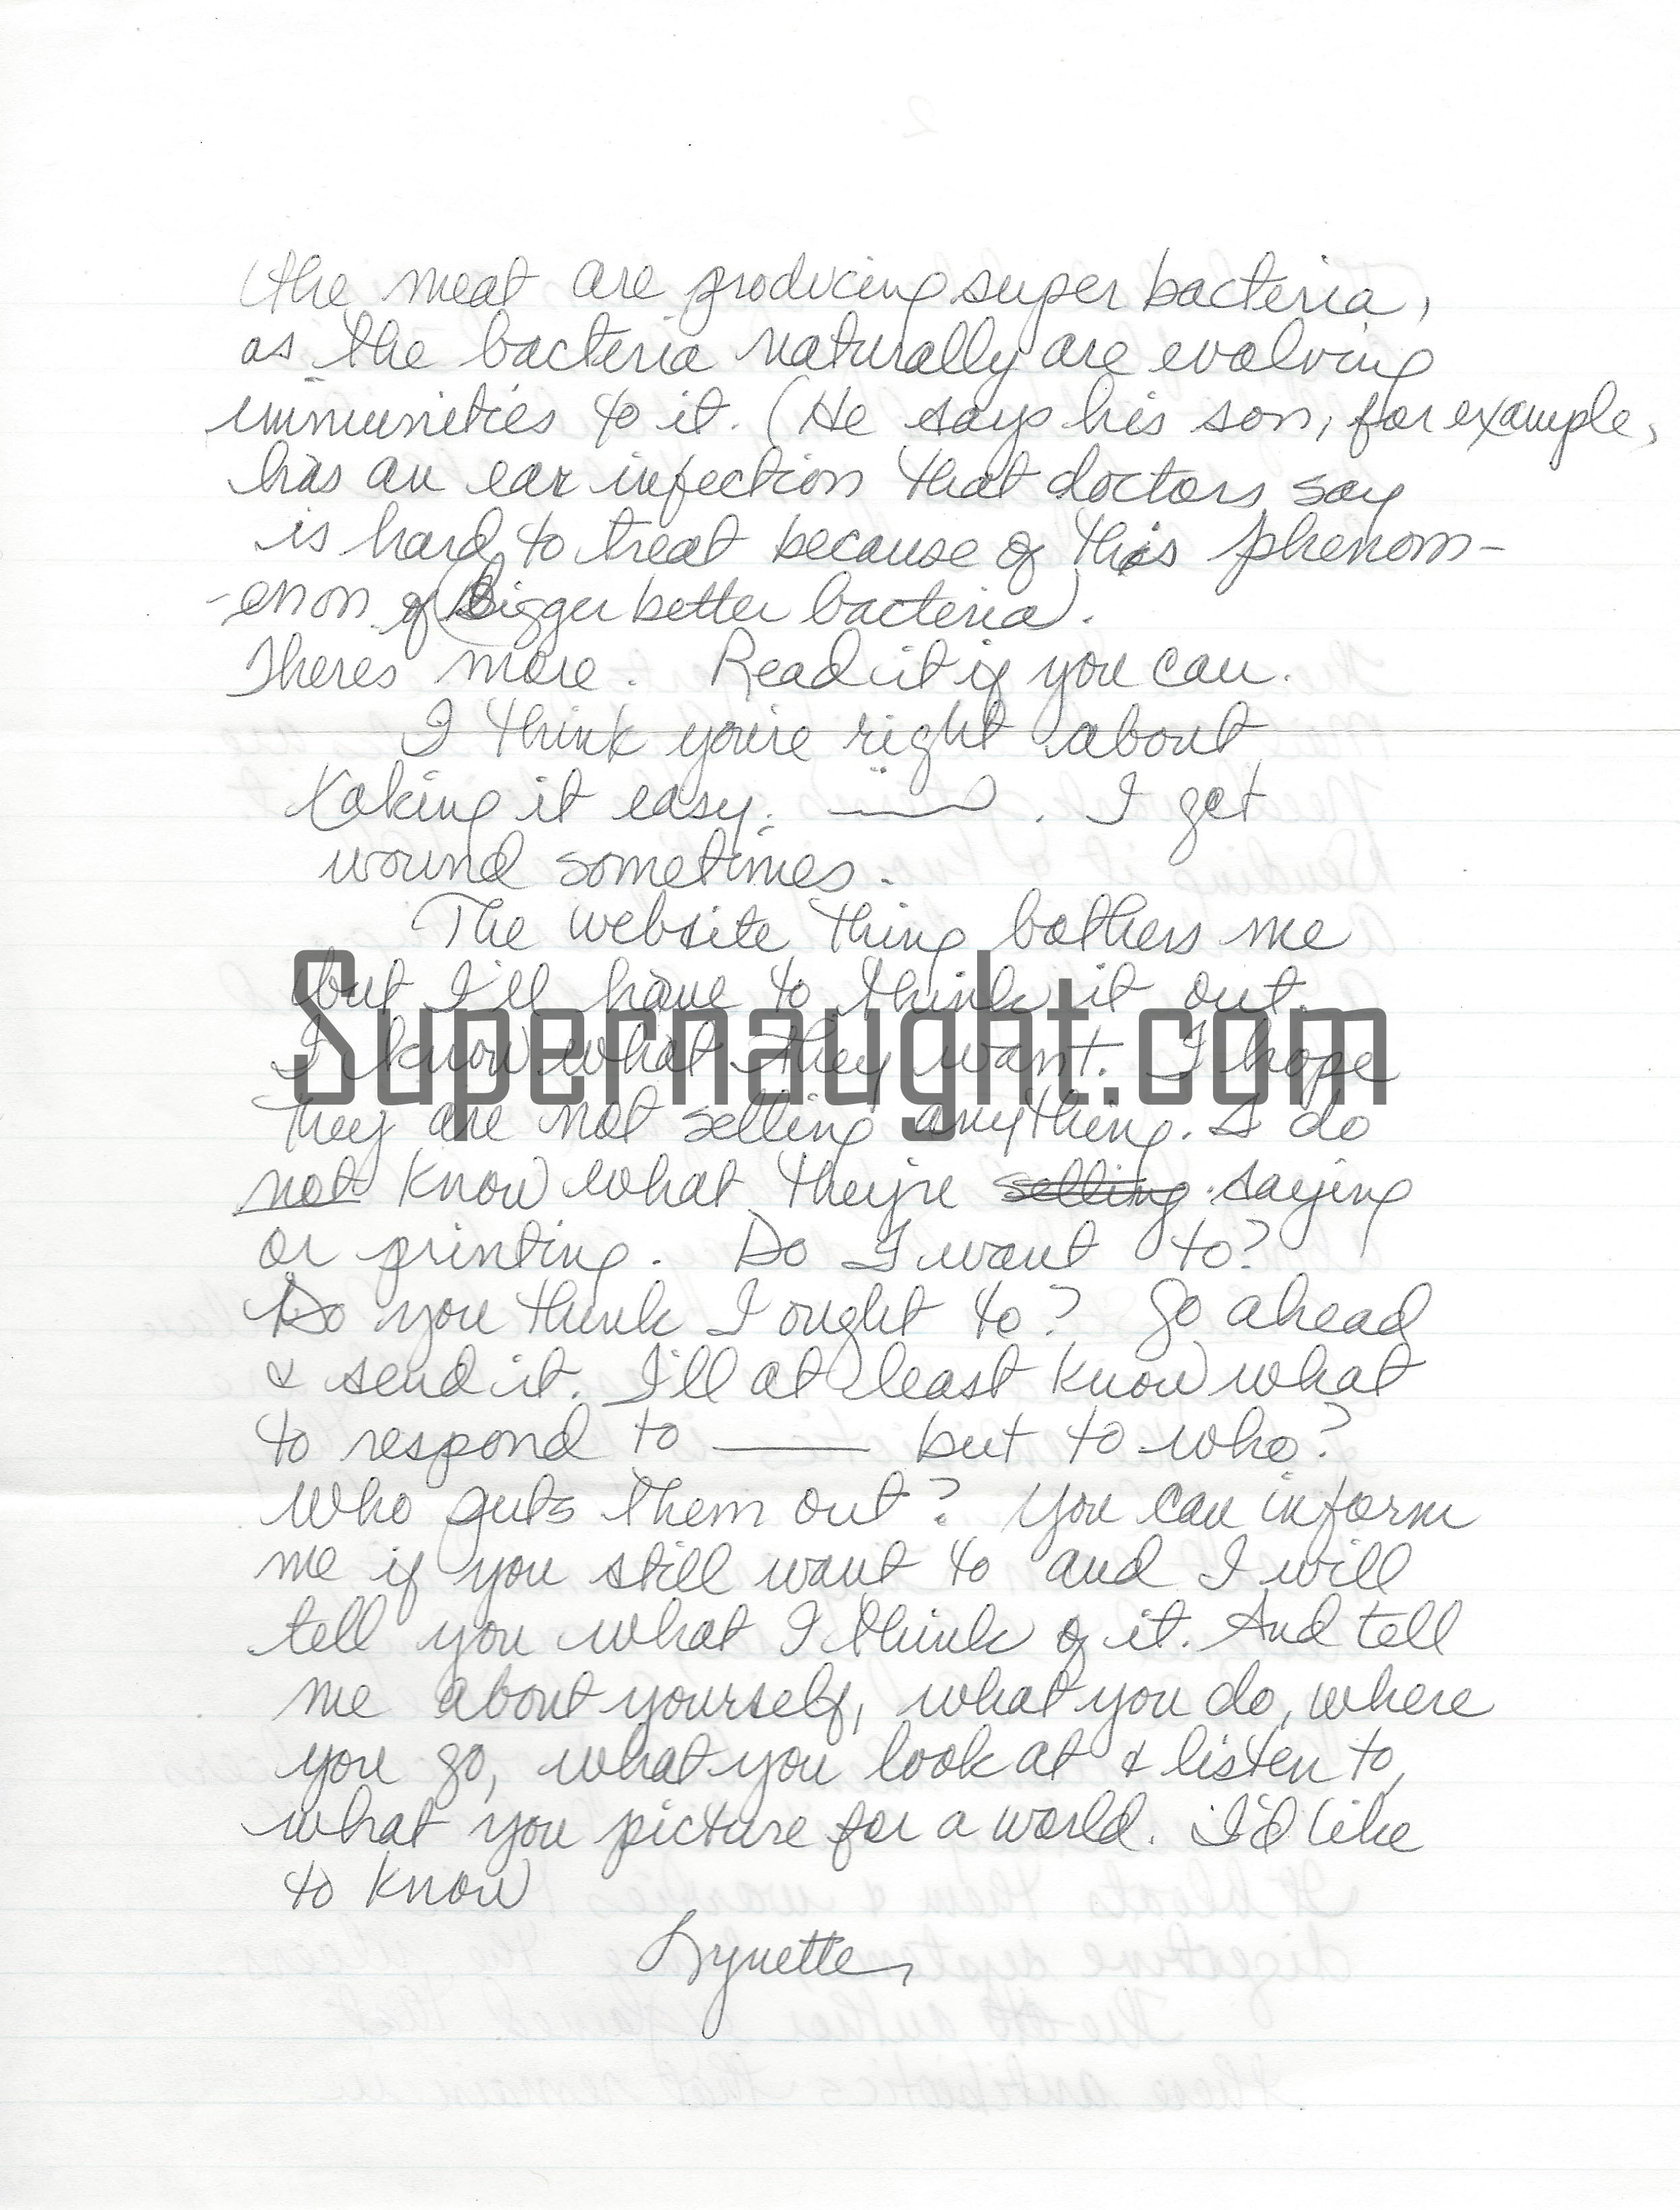 the meat are producing super bacteria,
as the bacteria naturally are evolving
immunities to it. (He says his son, for example,
has an ear infection that doctors say
is hard to treat because of this phenom-
-enon of (Bigger better bacteria).
Theres more. Read it if you can.
I think you're right about
taking it easy. . I get
wound sometimes.
The website thing bothers me
but I'll have to think it out.
I know what they want. I hope
Supernaught.com
they are not selling anything. I do
not know what they're selling saying
or printing. Do I want to?
Do you think I ought to? Go ahead
& send it. I'll at least know what
to respond to —— but to who?
Who puts them out? You can inform
me if you still want to and I will
tell you what I think of it. And tell
me about yourself, what you do, where
you go, what you look at & listen to,
what you picture for a world. I'd like
to know
Lynette